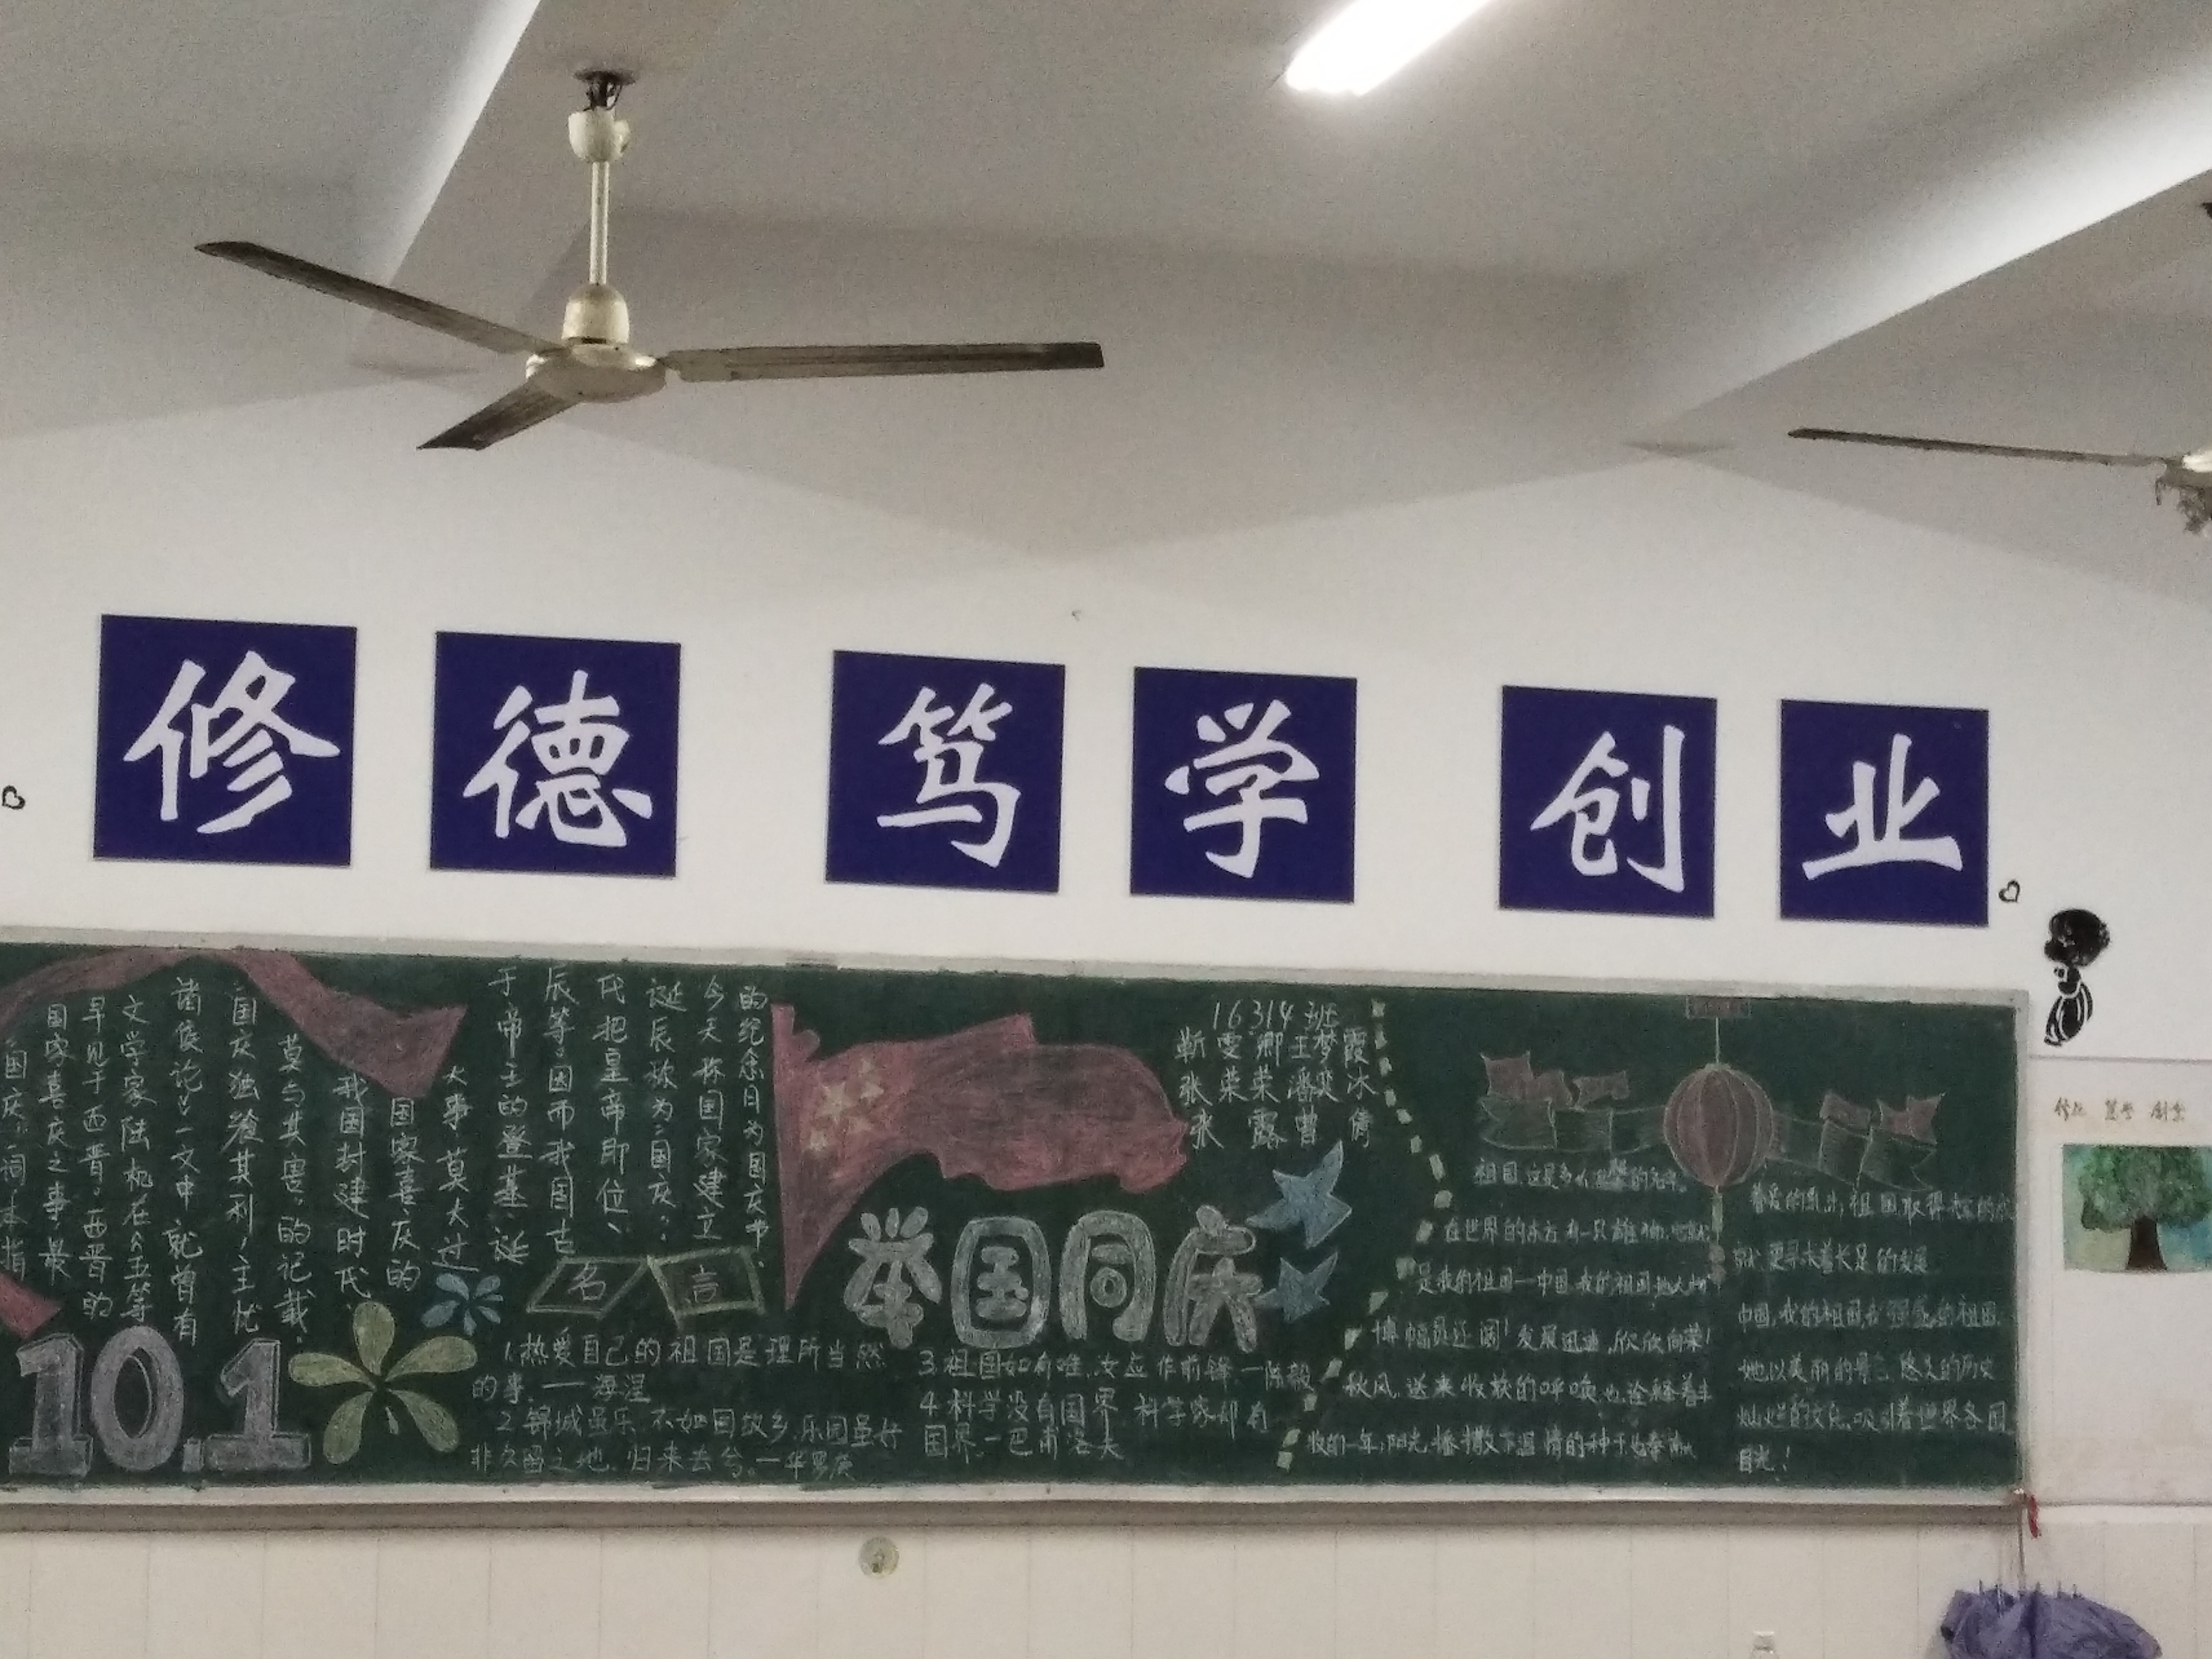 修德 笃学 创业
国庆
国家喜庆之事,最
早见于西晋。西晋的
文学家陆机在《五等
诸侯论》一文中就曾有
国庆独飨其利,主忧
莫与其害”的记载、
我国封建时代、
国家喜庆的
大事,莫大过
于帝王的登基、诞
辰等。因而我国古
代把皇帝即位、
诞辰称为“国庆”。
今天称国家建立
的纪念日为国庆节。
10.1
名言
1.热爱自己的祖国是理所当然
的事.——海涅
2.锦城虽乐,不如回故乡,乐园虽好
非久留之地.归来去兮.—华罗庚
16314班
举国同庆
3.祖国如有难,汝应作前锋.—陈毅
4.科学没有国界 科学家却有
国界.—巴甫洛夫
祖国,这是多么
在世界的东方有一只雄狮,
是我的祖国—中国 我的祖国地大物
博 幅员辽阔!发展迅速,欣欣向荣!
秋风,送来收获的呼唤,也诠释着丰
收的一年;阳光,播撒下温情的种子
祖国取得
着长足的发展
中国,我的祖国,我 的祖国
她以美丽的 ,悠久的历史
灿烂的文化,吸引着世界各国
目光!
修德 笃学 创业